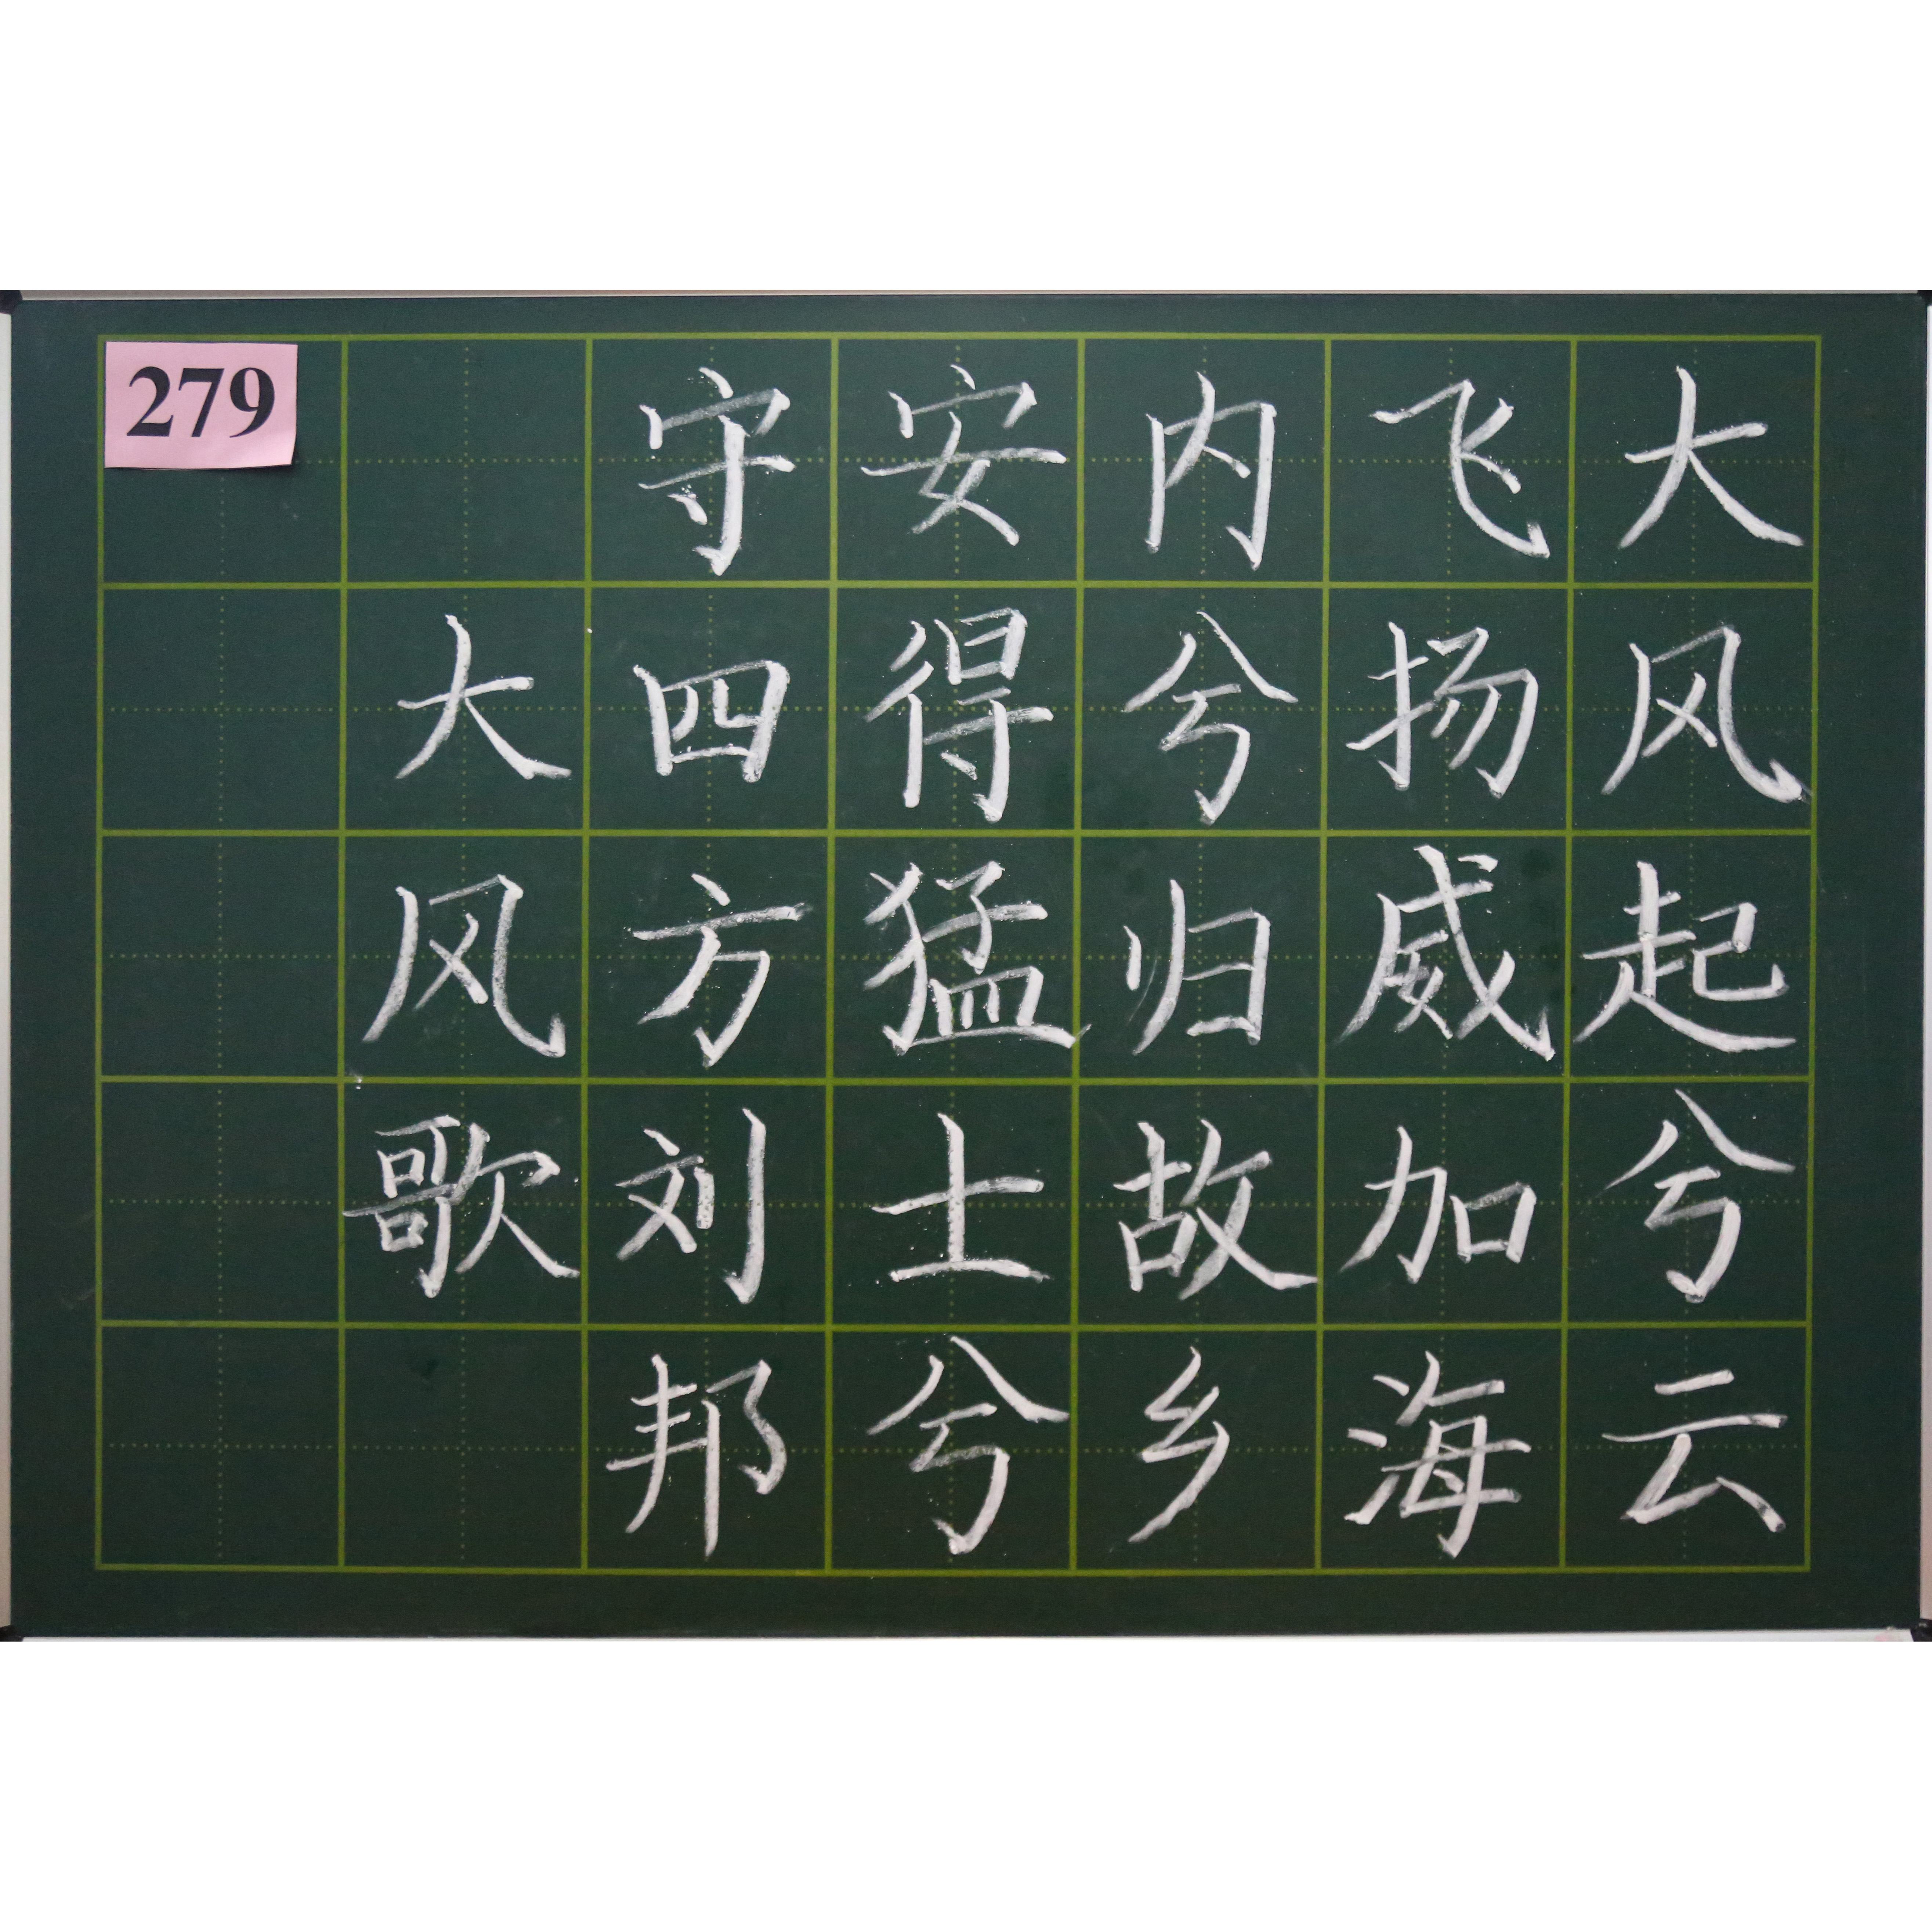 大风起兮云
飞扬威加海
内兮归故乡
安得猛士兮
守四方刘邦
大风歌
279